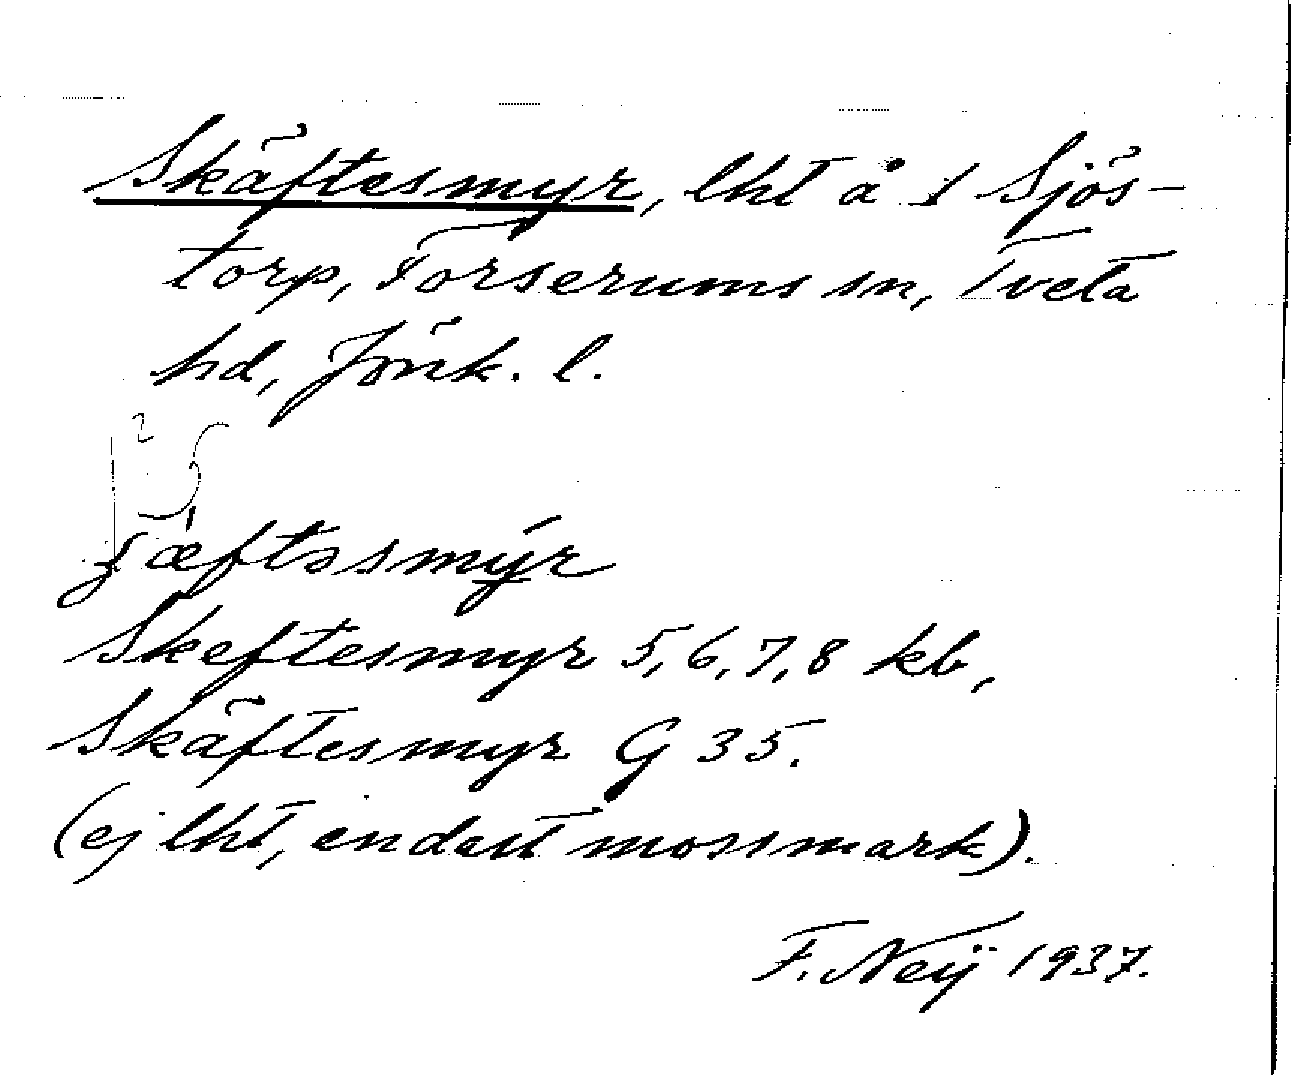 Skäftesmyr, lht å 1 Sjös-
torp, Forserums sn, Tveta
hd, Jönk. l.
Skeftesmyr 5, 6, 7, 8 kb,
Skäftesmyr G 35.
(ej lht, endast mossmark).
F. Neij 1937.